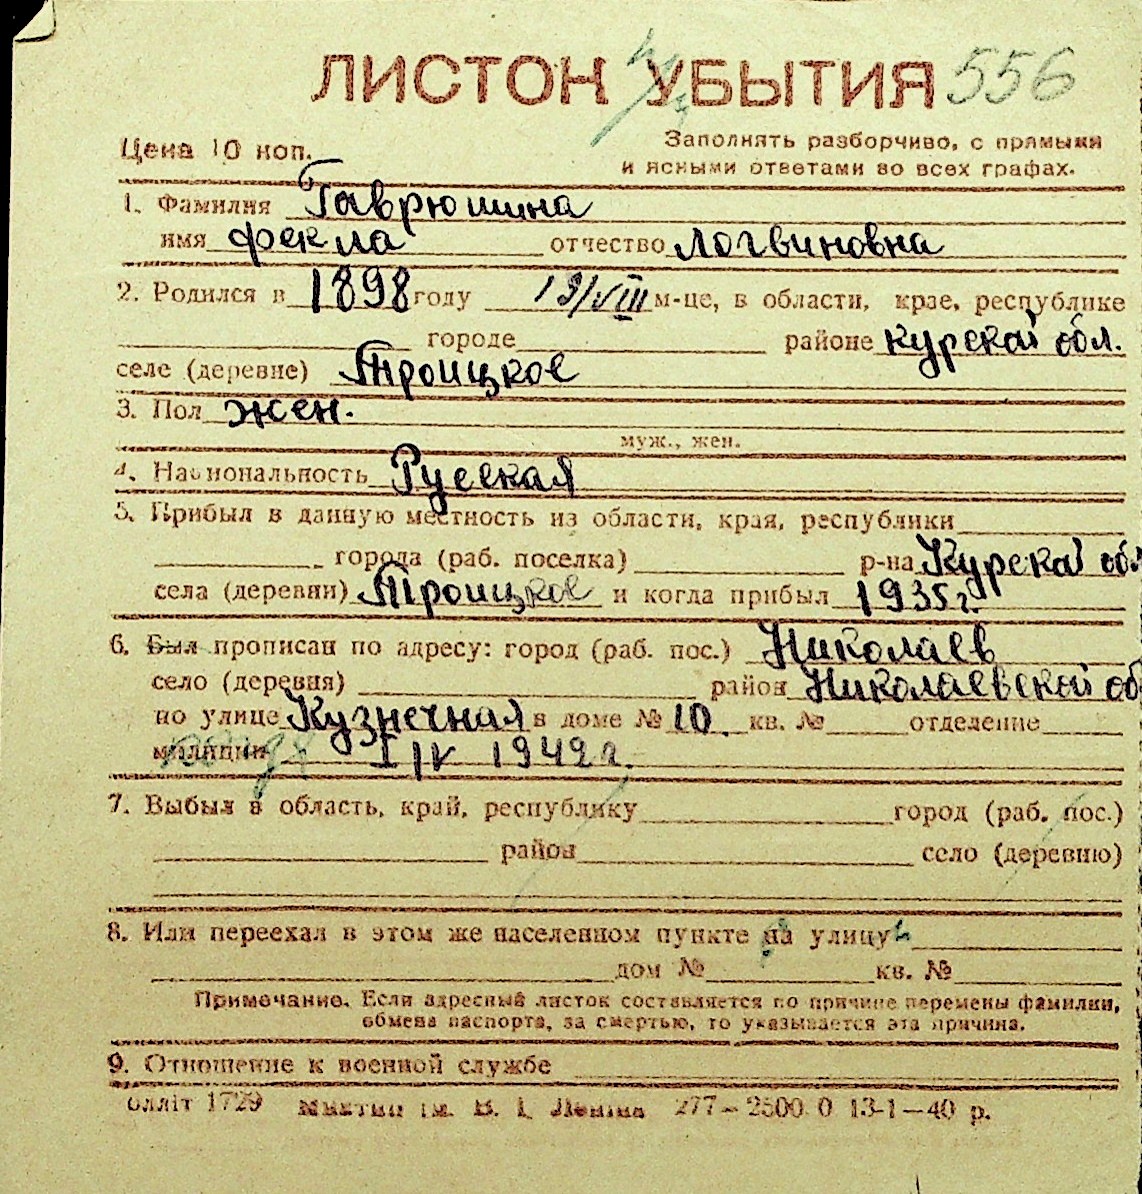 ЛИСТОК УБЫТИЯ 556
Цена 10 коп.
Заполнять разборчиво, с прямыми
и ясными ответами во всех графах.
1. Фамилия Гаврюшина
имя Фекла отчество Логвиновна
2. Родился в 1898 году 19/VIII м-це, в области, крае, республике
городе районе Курской обл.
селе (деревне) Троицкое
3. Пол жен.
муж., жен.
4. Национальность Русская
5. Прибыл в данную местность из области, края, республики
города (раб. поселка) р-на Курской об.
села (деревни) Троицкое и когда прибыл 1935 г.
6. Был прописан по адресу: город (раб. пос.) Николаев
село (деревня) район Николаевской об
по улице Кузнечная в доме № 10. кв. № отделение
милиции I/IV 1942 г.
7. Выбыл в область, край, республику город (раб. пос.)
район село (деревню)
8. Или переехал в этом же населенном пункте на улицу
дом № кв. №
Примечание. Если адресный листок составляется по причине перемены фамилии,
обмена паспорта, за смертью, то указывается эта причина.
9. Отношение к военной службе
олліт 1729 ім. В. І. Леніна 277—2500 0 13-1—40 р.